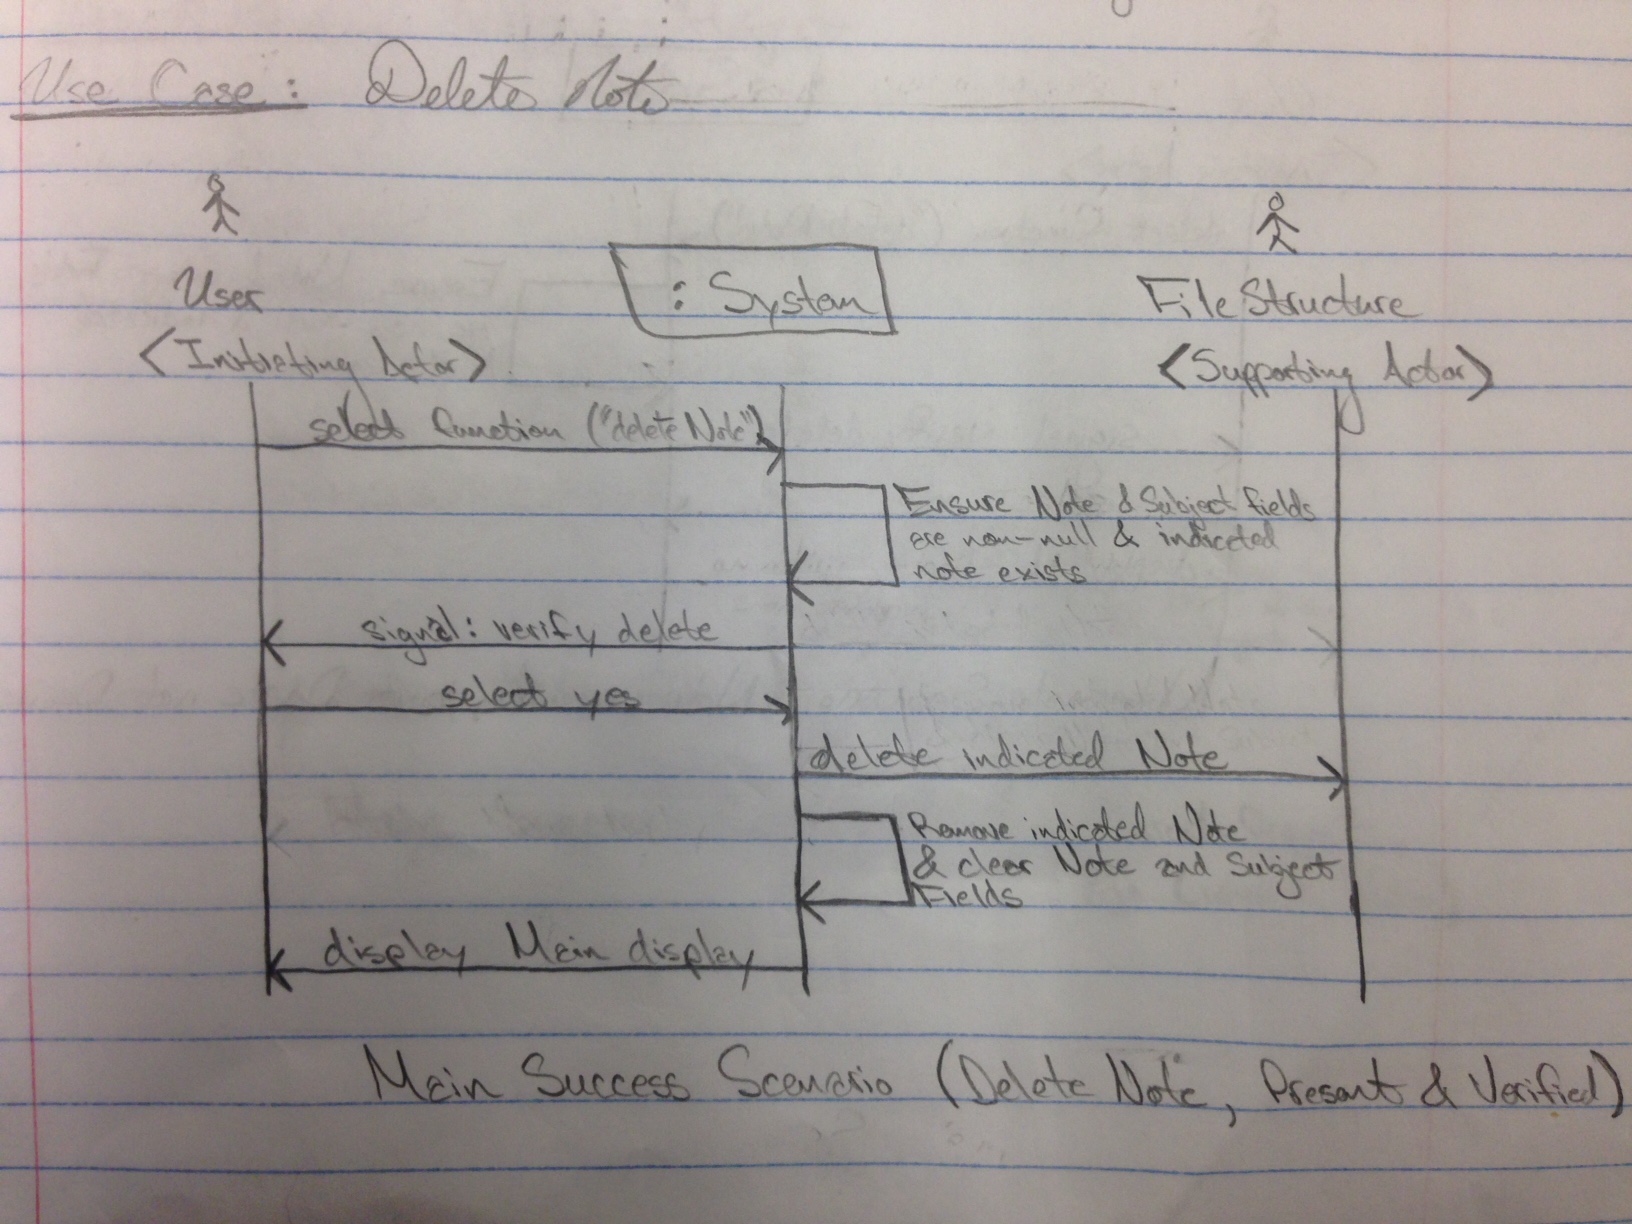 Use Case: Delete Note
User
: System
File Structure
<Initiating Actor>
<Supporting Actor>
select function ("delete Note")
Ensure Note & Subject fields
are non-null & indicated
note exists
signal: verify delete
select yes
delete indicated Note
Remove indicated Note
& clear Note and Subject
Fields
display Main display
Main Success Scenario (Delete Note, Present & Verified)